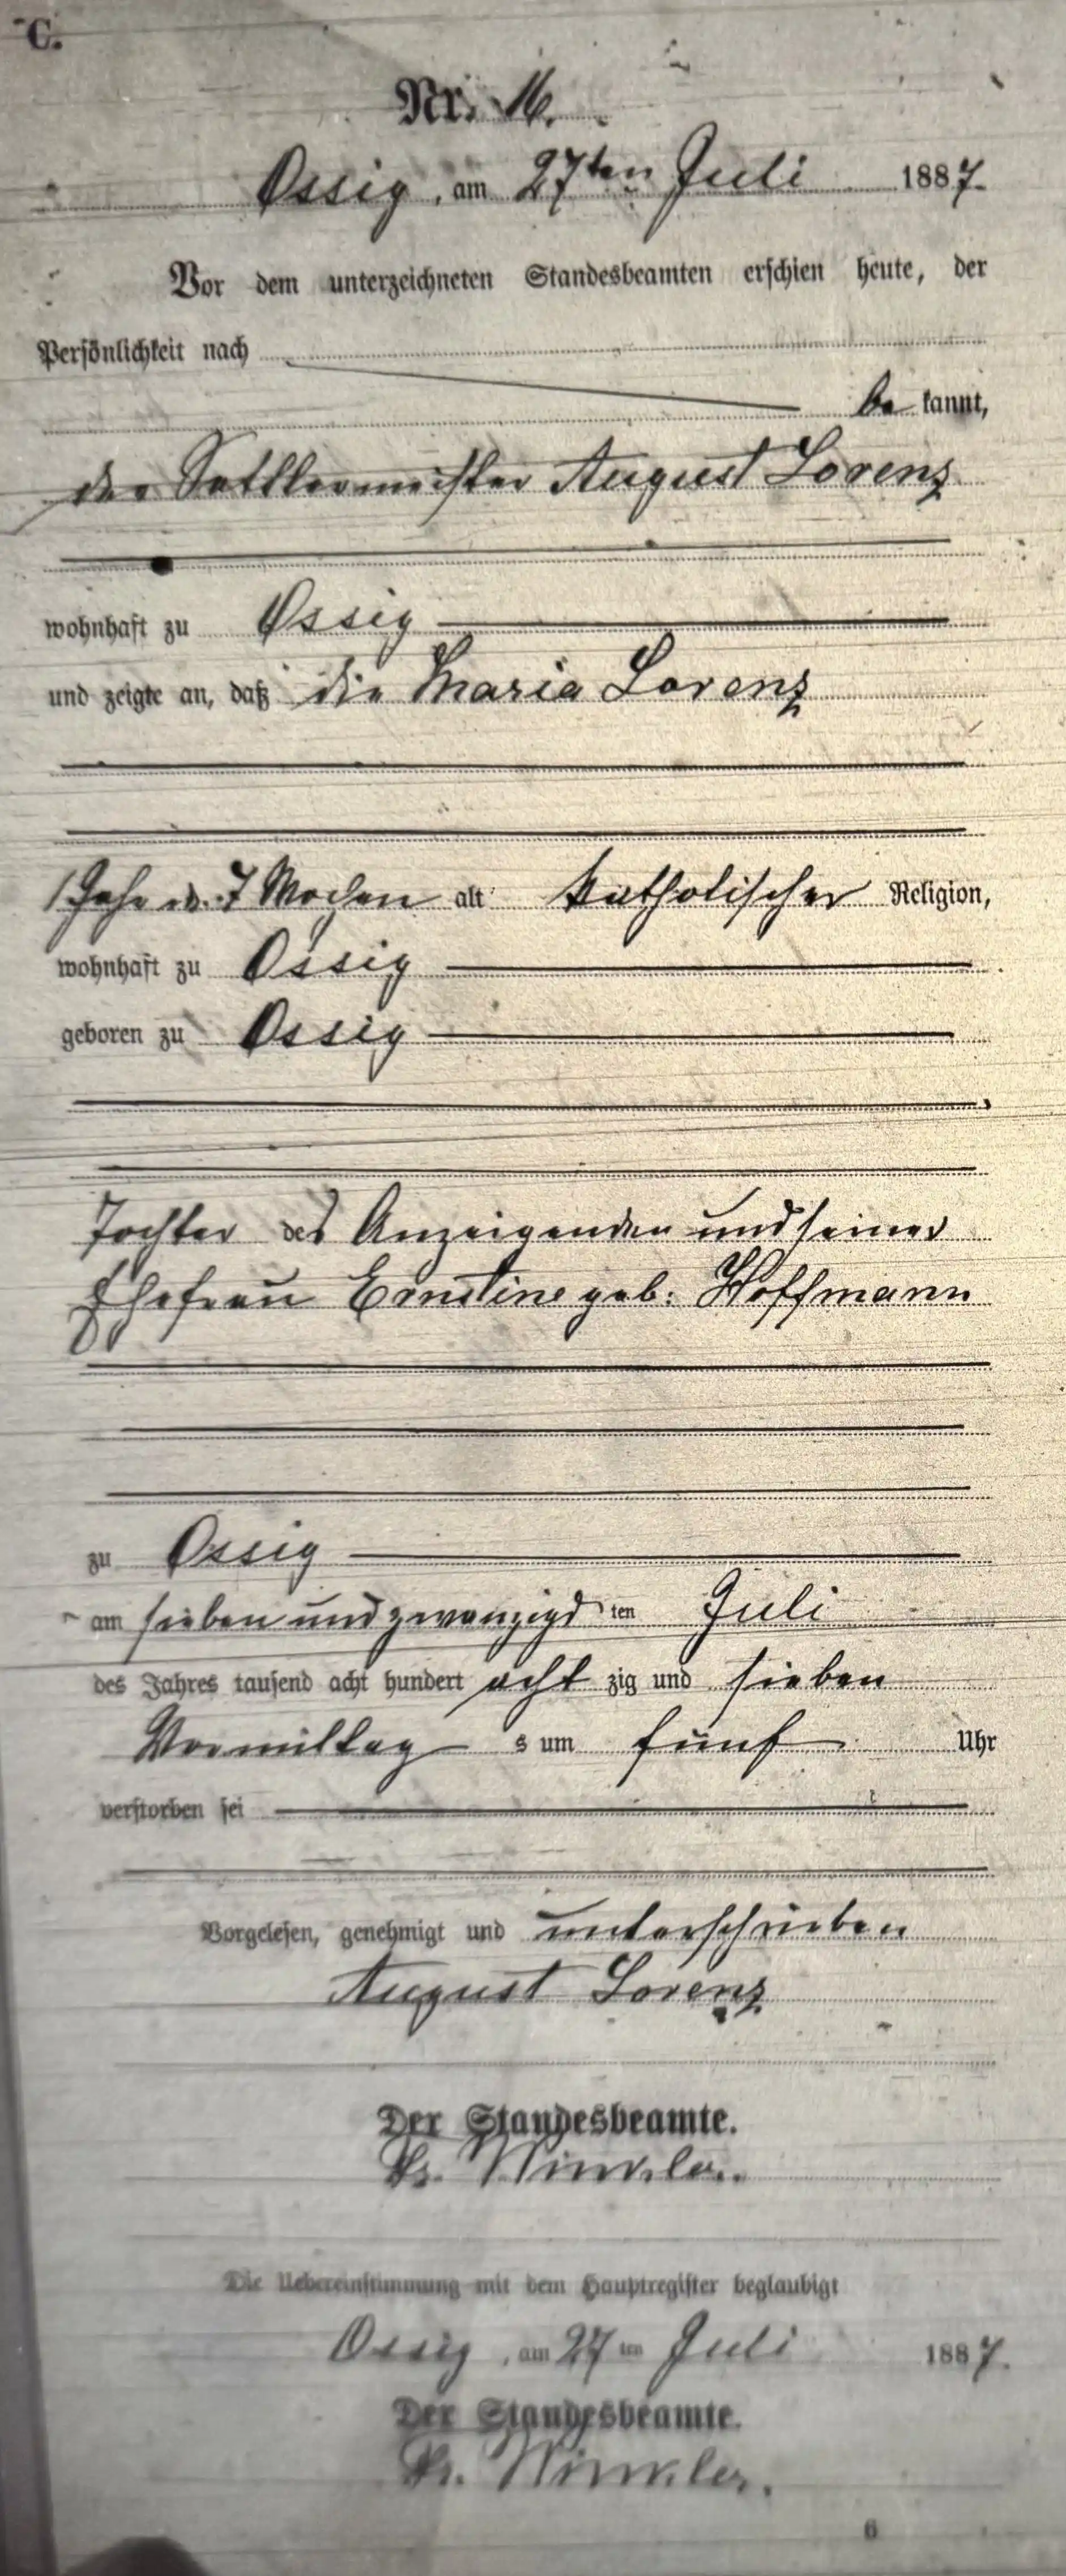 C.
Nr. 16.
Ossig, am 27ten Juli 1887.
Vor dem unterzeichneten Standesbeamten erschien heute, der
Persönlichkeit nach
be kannt,
der Sattlermeister August Lorenz
wohnhaft zu Ossig
und zeigte an, daß die Maria Lorenz
1 Jahr u. 7 Wochen alt katholischer Religion,
wohnhaft zu Ossig
geboren zu Ossig
Tochter des Anzeigenden und seiner
Ehefrau Ernstine geb: Hoffmann
zu Ossig
am sieben und zwanzigs ten Juli
des Jahres tausend acht hundert acht zig und sieben
Vormittag s um fünf Uhr
verstorben sei
Vorgelesen, genehmigt und unterschrieben
August Lorenz
Der Standesbeamte.
Winkler.
Die Uebereinstimmung mit dem Hauptregister beglaubigt
Ossig, am 27 ten Juli 1887.
Der Standesbeamte.
Winkler.
6